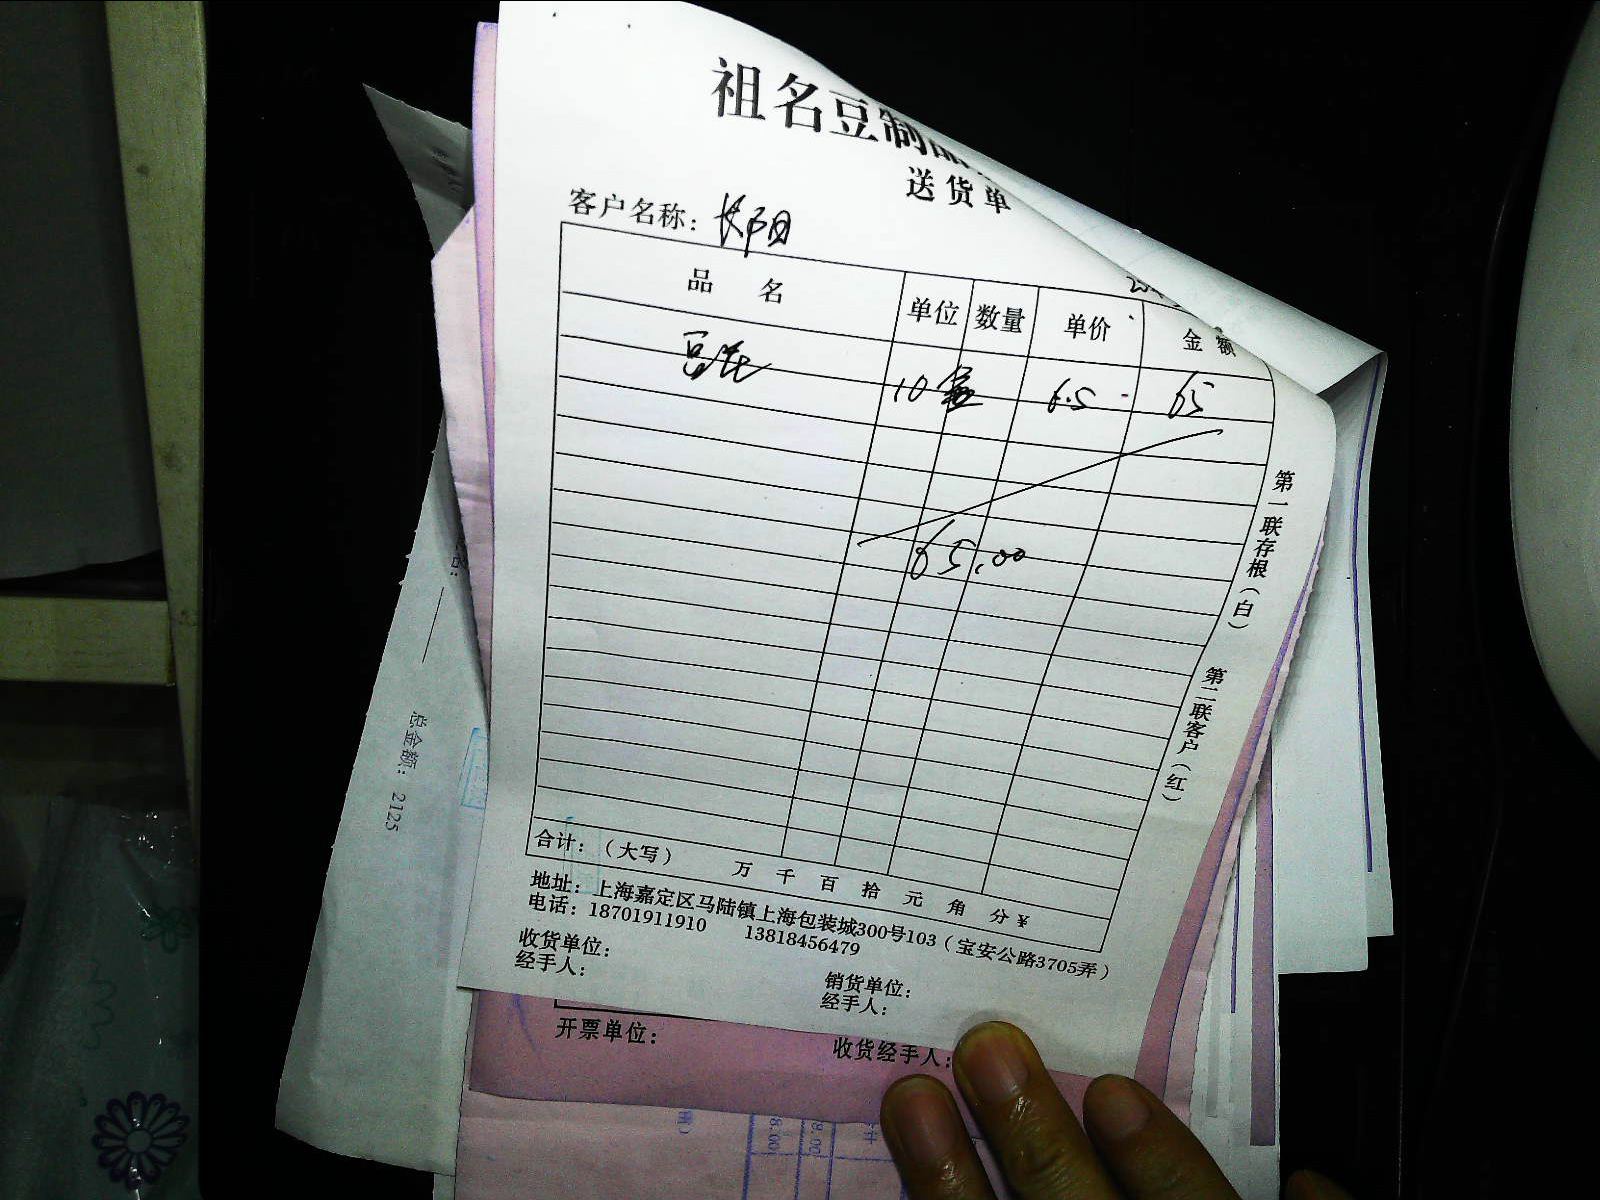 祖名豆制品
送货单
客户名称：长阳
品名 单位 数量 单价 金额
豆花 10盒 6.5 65
65.00
第一联存根（白） 第二联客户（红）
合计：（大写） 万 千 百 拾 元 角 分¥
地址：上海嘉定区马陆镇上海包装城300号103（宝安公路3705弄）
电话：18701911910 13818456479
收货单位： 销货单位：
经手人： 经手人：
开票单位： 收货经手人：
总金额：2125